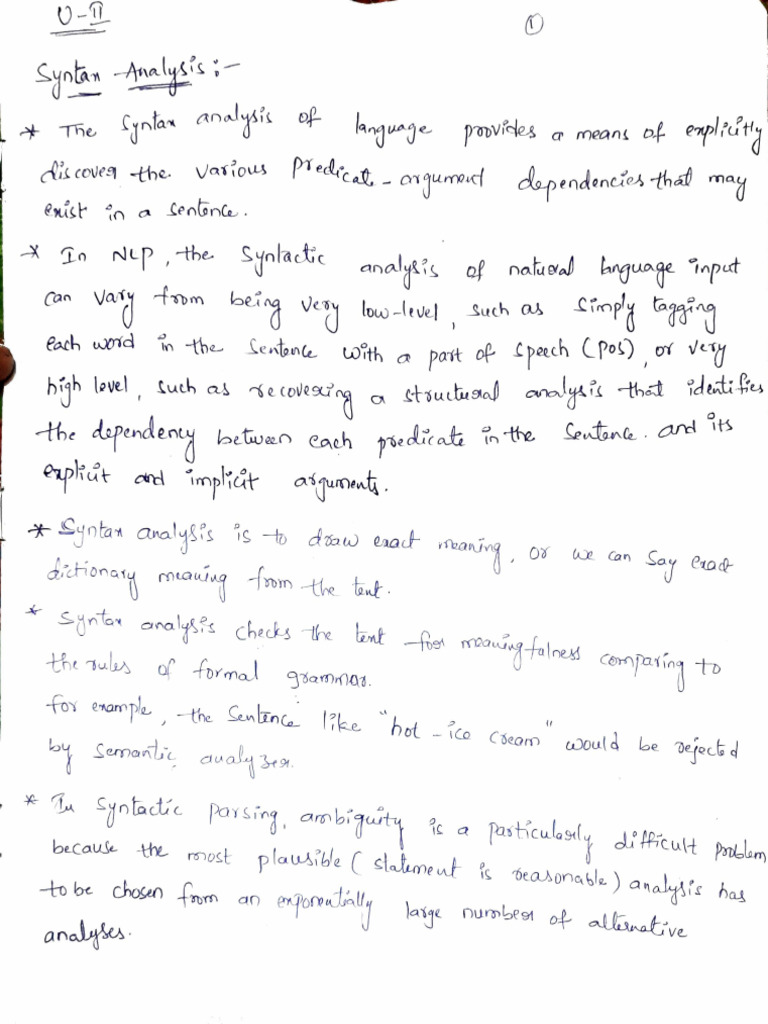 U-II
1
Syntax Analysis:-
* The Syntax analysis of language provides a means of explicitly
discover the various Predicate-argument dependencies that may
exist in a sentence.
* In NLP, the Syntactic analysis of natural language input
can vary from being very low-level, such as simply tagging
each word in the sentence with a part of speech (POS), or very
high level, such as recovering a structural analysis that identifies
the dependency between each predicate in the sentence. and its
explicit and implicit arguments.
* Syntax analysis is to draw exact meaning, or we can say exact
dictionary meaning from the text.
* Syntax analysis checks the text for meaningfulness comparing to
the rules of formal grammar.
for example, the Sentence like "hot-ice cream" would be rejected
by semantic analyzer.
* In syntactic parsing, ambiguity is a particularly difficult problem
because the most plausible (statement is reasonable) analysis has
to be chosen from an exponentially large number of alternative
analyses.